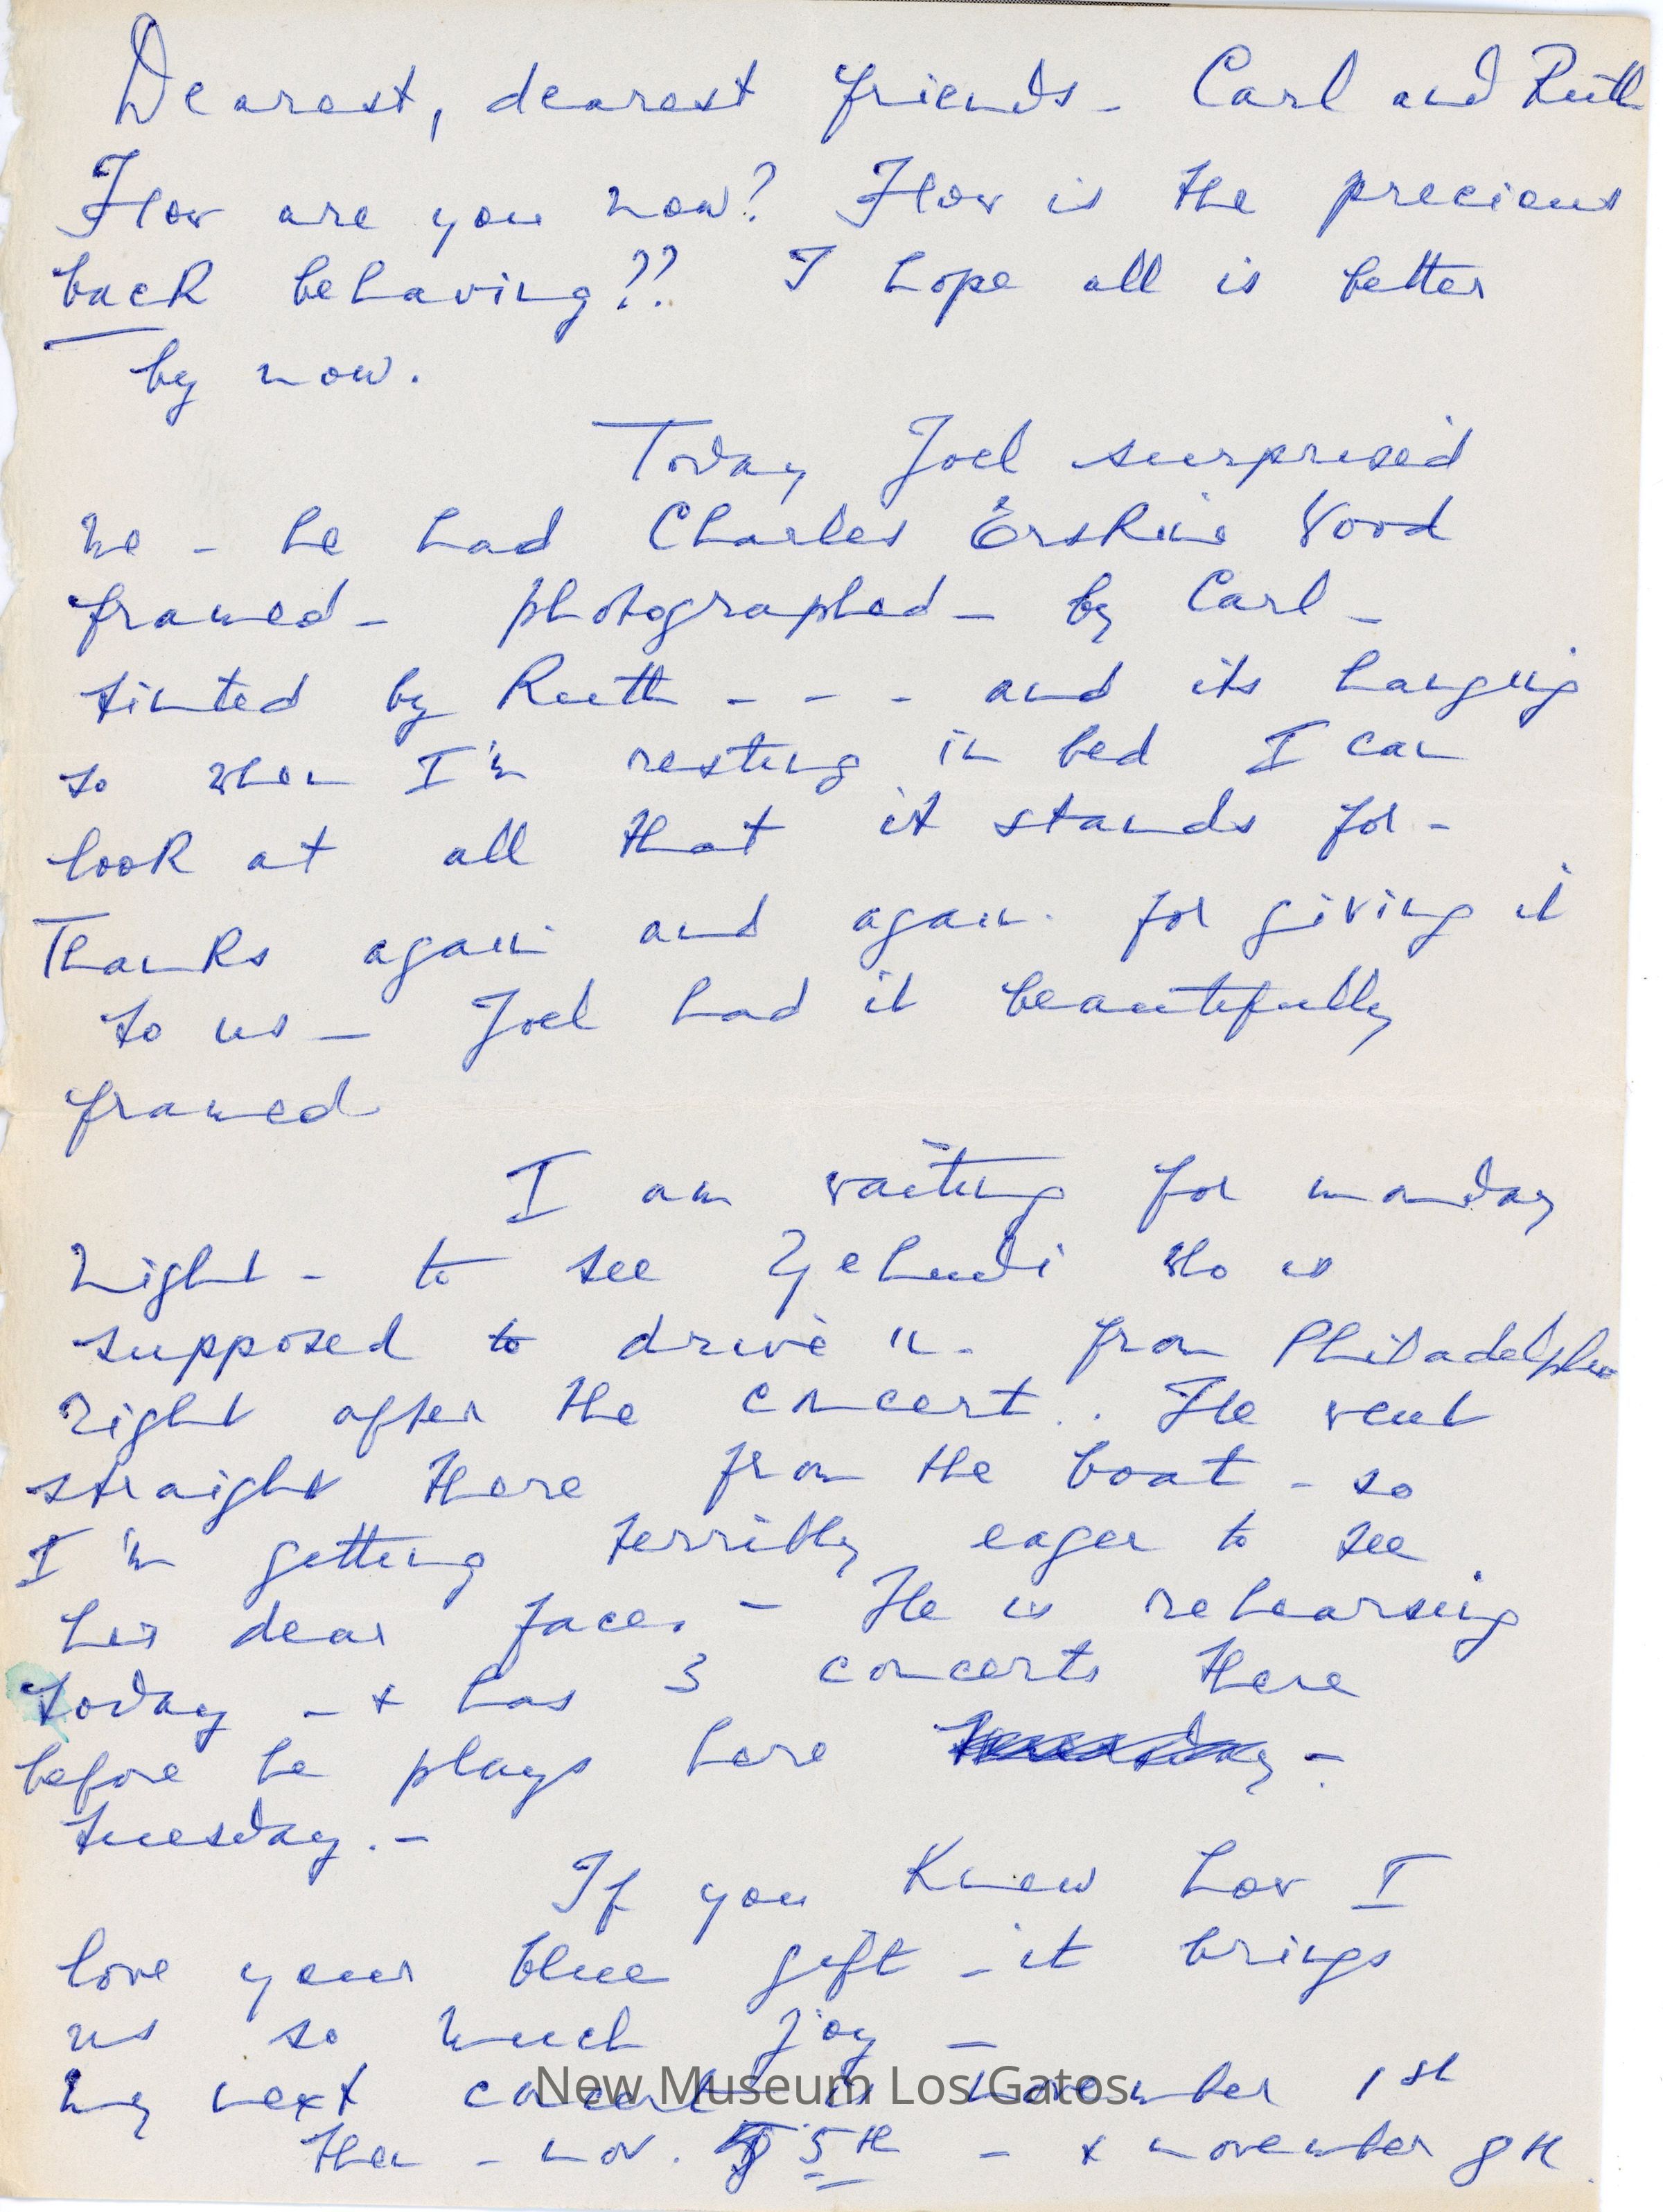 Dearest, dearest friends - Carl and Ruth
How are you now? How is the precious
back behaving?? I hope all is better
by now.
Today Joel surprised
me - he had Charles Erskine Wood
framed - photographed - by Carl -
tinted by Ruth - - - and its hanging
so when I'm resting in bed I can
look at all that it stands for -
Thanks again and again for giving it
to us - Joel had it beautifully
framed
I am waiting for monday
night - to see Yehudi who is
supposed to drive in from Philadelphia
right after the concert. . He went
straight there from the boat - so
I'm getting terribly eager to see
his dear face. - He is rehearsing
today - & has 3 concerts there
before he plays here -
tuesday. -
If you knew how I
love your blue gift - it brings
us so much joy -
my next concert is november 1st
New Museum Los Gatos
then - nov. 5th - & november 8th.